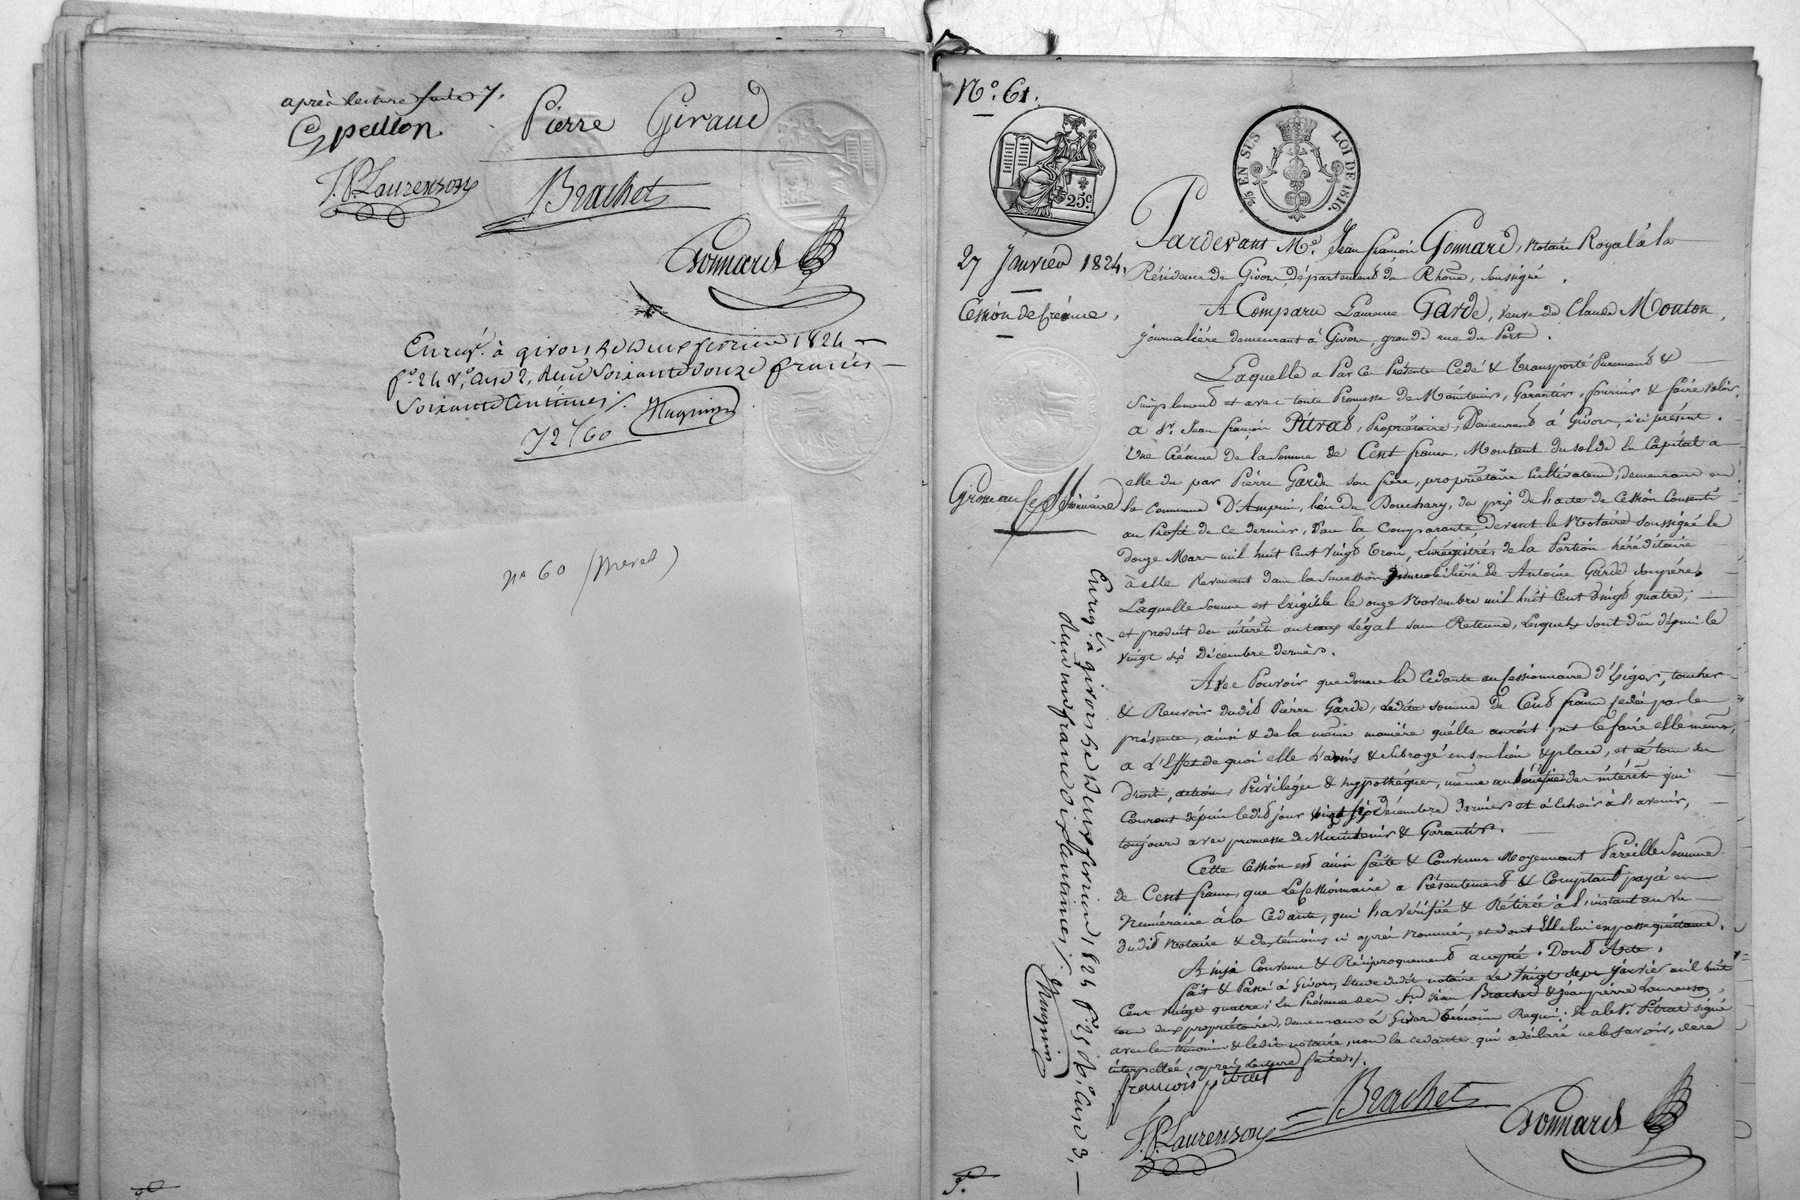 après lecture faite ./.
Cpeillon
Pierre Giraud
J.P. Laurenson
Brachet
Gonnard
Enreg. à givors le deux fevrier 1824
f° 24 v°, case 2, Reçu soixante douze francs
soixante centimes ./.
72f60
N° 60 (Mered)
N° 61.
25c.
EN SUS
LOI DE 1816.
27 Janvier 1824,
Cession de Créance,
Grosse au Cessionnaire
Pardevant Me Jean françois Gonnard, Notaire Royal à la
Résidence de Givors, département du Rhône, soussigné.
A Comparu Laurence Garde, veuve de Claude Mouton,
journalière demeurant à Givors, grande rue du Port.
Laquelle a Par ce Présente Cédé & Transporté Purement &
Simplement et avec toute Promesse de Maintenir, Garantir, fournir & faire valoir,
A Sr. Jean françois Pitrat, Propriétaire, Demeurant à Givors, ici présent.
Une Créance de la Somme de Cent francs, Montant du solde en Capital a
elle du par Pierre Garde son frère, propriétaire cultivateur, demeurant en
la Commune D'Ampuis, lieu du Bouchary, du prix de l'acte de Cession Consenti
au Profit de ce dernier, Par la Comparante, devant le Notaire soussigné le
douze Mars mil huit Cent vingt trois, Enrégistré, de la Portion héréditaire
à elle Revenant dans la Succession immobilière de Antoine Garde son père,
Laquelle somme est Exigible le onze Novembre mil huit Cent vingt quatre,
et produit des intérêts au taux Légal sans Retenue, Lesquels sont dus depuis le
vingt six Décembre dernier.
Avec Pouvoir que donne la Cédante au Cessionnaire d'Exiger, toucher
& Recevoir dudit Pierre Garde, ladite somme de Cent francs Cédée par les
présentes, ainsi & de la même manière qu'elle auroit pu le faire elle même,
A L'Effet de quoi elle l'a mis & subrogé en son lieu & place, et à tous ses
droits, actions, Privilèges & hypothèques, même au bénéfice des intérêts qui
Courent depuis ledit jour vingt six décembre dernier et à échoir à l'avenir,
toujours avec promesse de Maintenir & Garantir.
Cette Cession est ainsi faite & Convenue Moyennant Pareille Somme
de Cent francs, que Le Cessionnaire a Présentement & Comptant payée en
Numéraire à la Cédante, qui l'a vérifiée & Retirée à l'instant au vu
dudit Notaire & des témoins ci après Nommés, et dont Elle lui en passe quittance.
Ainsi Convenu & Réciproquement accepté. Dont Acte.
Fait & Passé à Givors, Etude dudit notaire Le vingt sept janvier mil huit
Cent vingt quatre; En Présence des Srs Jean Brachet & Jean pierre Laurenson,
tous deux propriétaires, demeurant à Givors Témoins Requis; Et a le Sr. Pitrat signé
avec les témoins & ledit notaire, non la cédante qui a déclaré ne le savoir, de ce
interpellée, après Lecture faite ./.
francois pitrat
J.P. Laurenson
Brachet
Gonnard
Enreg. à givors le deux fevrier 1824 f° 25 v°, case 3,
Reçu un franc dix centimes ./.